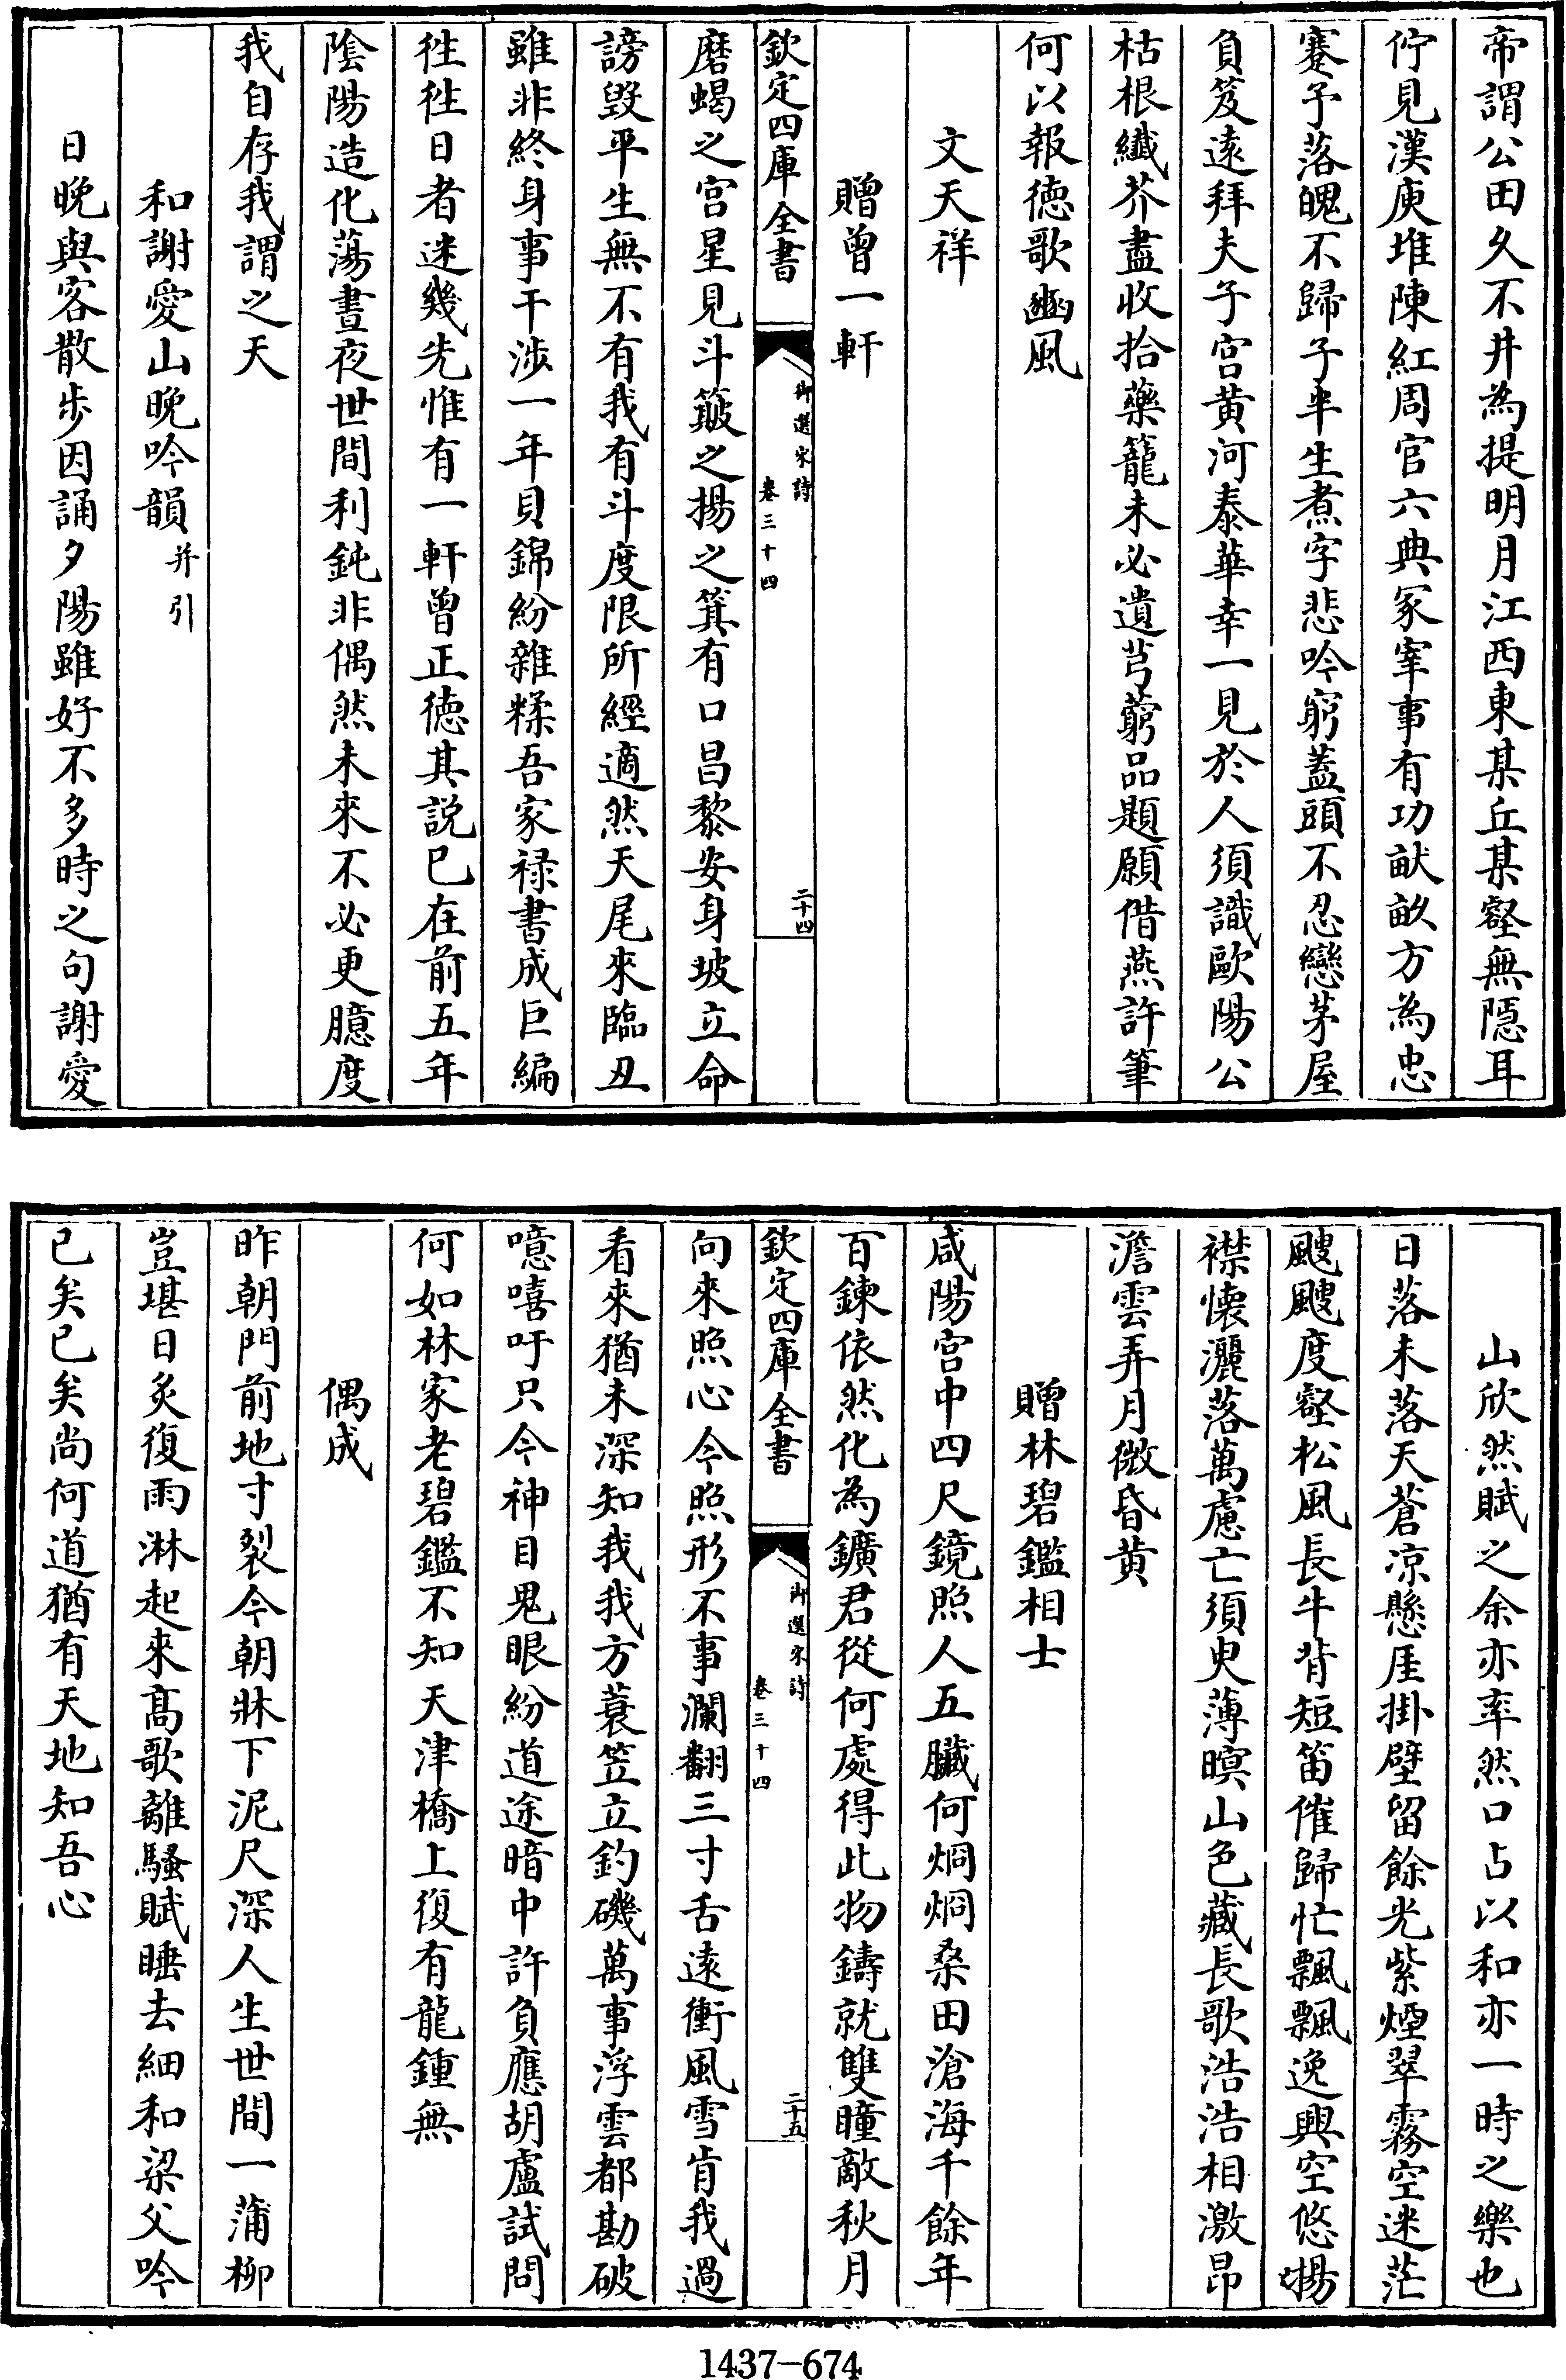 帝謂公田久不井為提明月江西東某丘某壑無隱耳
佇見漢庾堆陳紅周官六典冢宰事有功畎畝方為忠
蹇予落魄不歸子半生煮字悲吟窮蓋頭不忍戀茅屋
負笈逺拜夫子宫黄河泰華幸一見於人須識歐陽公
枯根纎芥盡收拾藥籠未必遺芎藭品題願借燕許筆
何以報徳歌豳風
文天祥
贈曾一軒
欽定四庫全書
御選宋詩
卷三十四
二十四
磨蝎之宫星見斗簸之揚之箕有口昌黎安身坡立命
謗毁平生無不有我有斗度限所經適然天尾來臨丑
雖非終身事干涉一年貝錦紛雜糅吾家禄書成巨編
徃徃日者迷幾先惟有一軒曾正徳其説已在前五年
隂陽造化蕩晝夜世間利鈍非偶然未來不必更臆度
我自存我謂之天
和謝愛山晚吟韻并引
日晚與客散步因誦夕陽雖好不多時之句謝愛
山欣然賦之余亦率然口占以和亦一時之樂也
日落未落天蒼凉懸厓掛壁留餘光紫煙翠霧空迷茫
颼颼度壑松風長牛背短笛催歸忙飄飄逸興空悠揚
襟懐灑落萬慮亡須臾薄暝山色藏長歌浩浩相激昂
澹雲弄月微昏黄
贈林碧鑑相士
咸陽宫中四尺鏡照人五臟何烱烱桑田滄海千餘年
百鍊依然化為鑛君從何處得此物鑄就雙瞳敵秋月
欽定四庫全書
御選宋詩
卷三十四
二十五
向來照心今照形不事瀾翻三寸舌逺衝風雪肯我過
看來猶未深知我我方蓑笠立釣磯萬事浮雲都勘破
噫嘻吁只今神目鬼眼紛道途暗中許負應胡盧試問
何如林家老碧鑑不知天津橋上復有龍鍾無
偶成
昨朝門前地寸裂今朝牀下泥尺深人生世間一蒲柳
豈堪日炙復雨淋起來髙歌離騷賦睡去細和梁父吟
已矣已矣尚何道猶有天地知吾心
1437-674